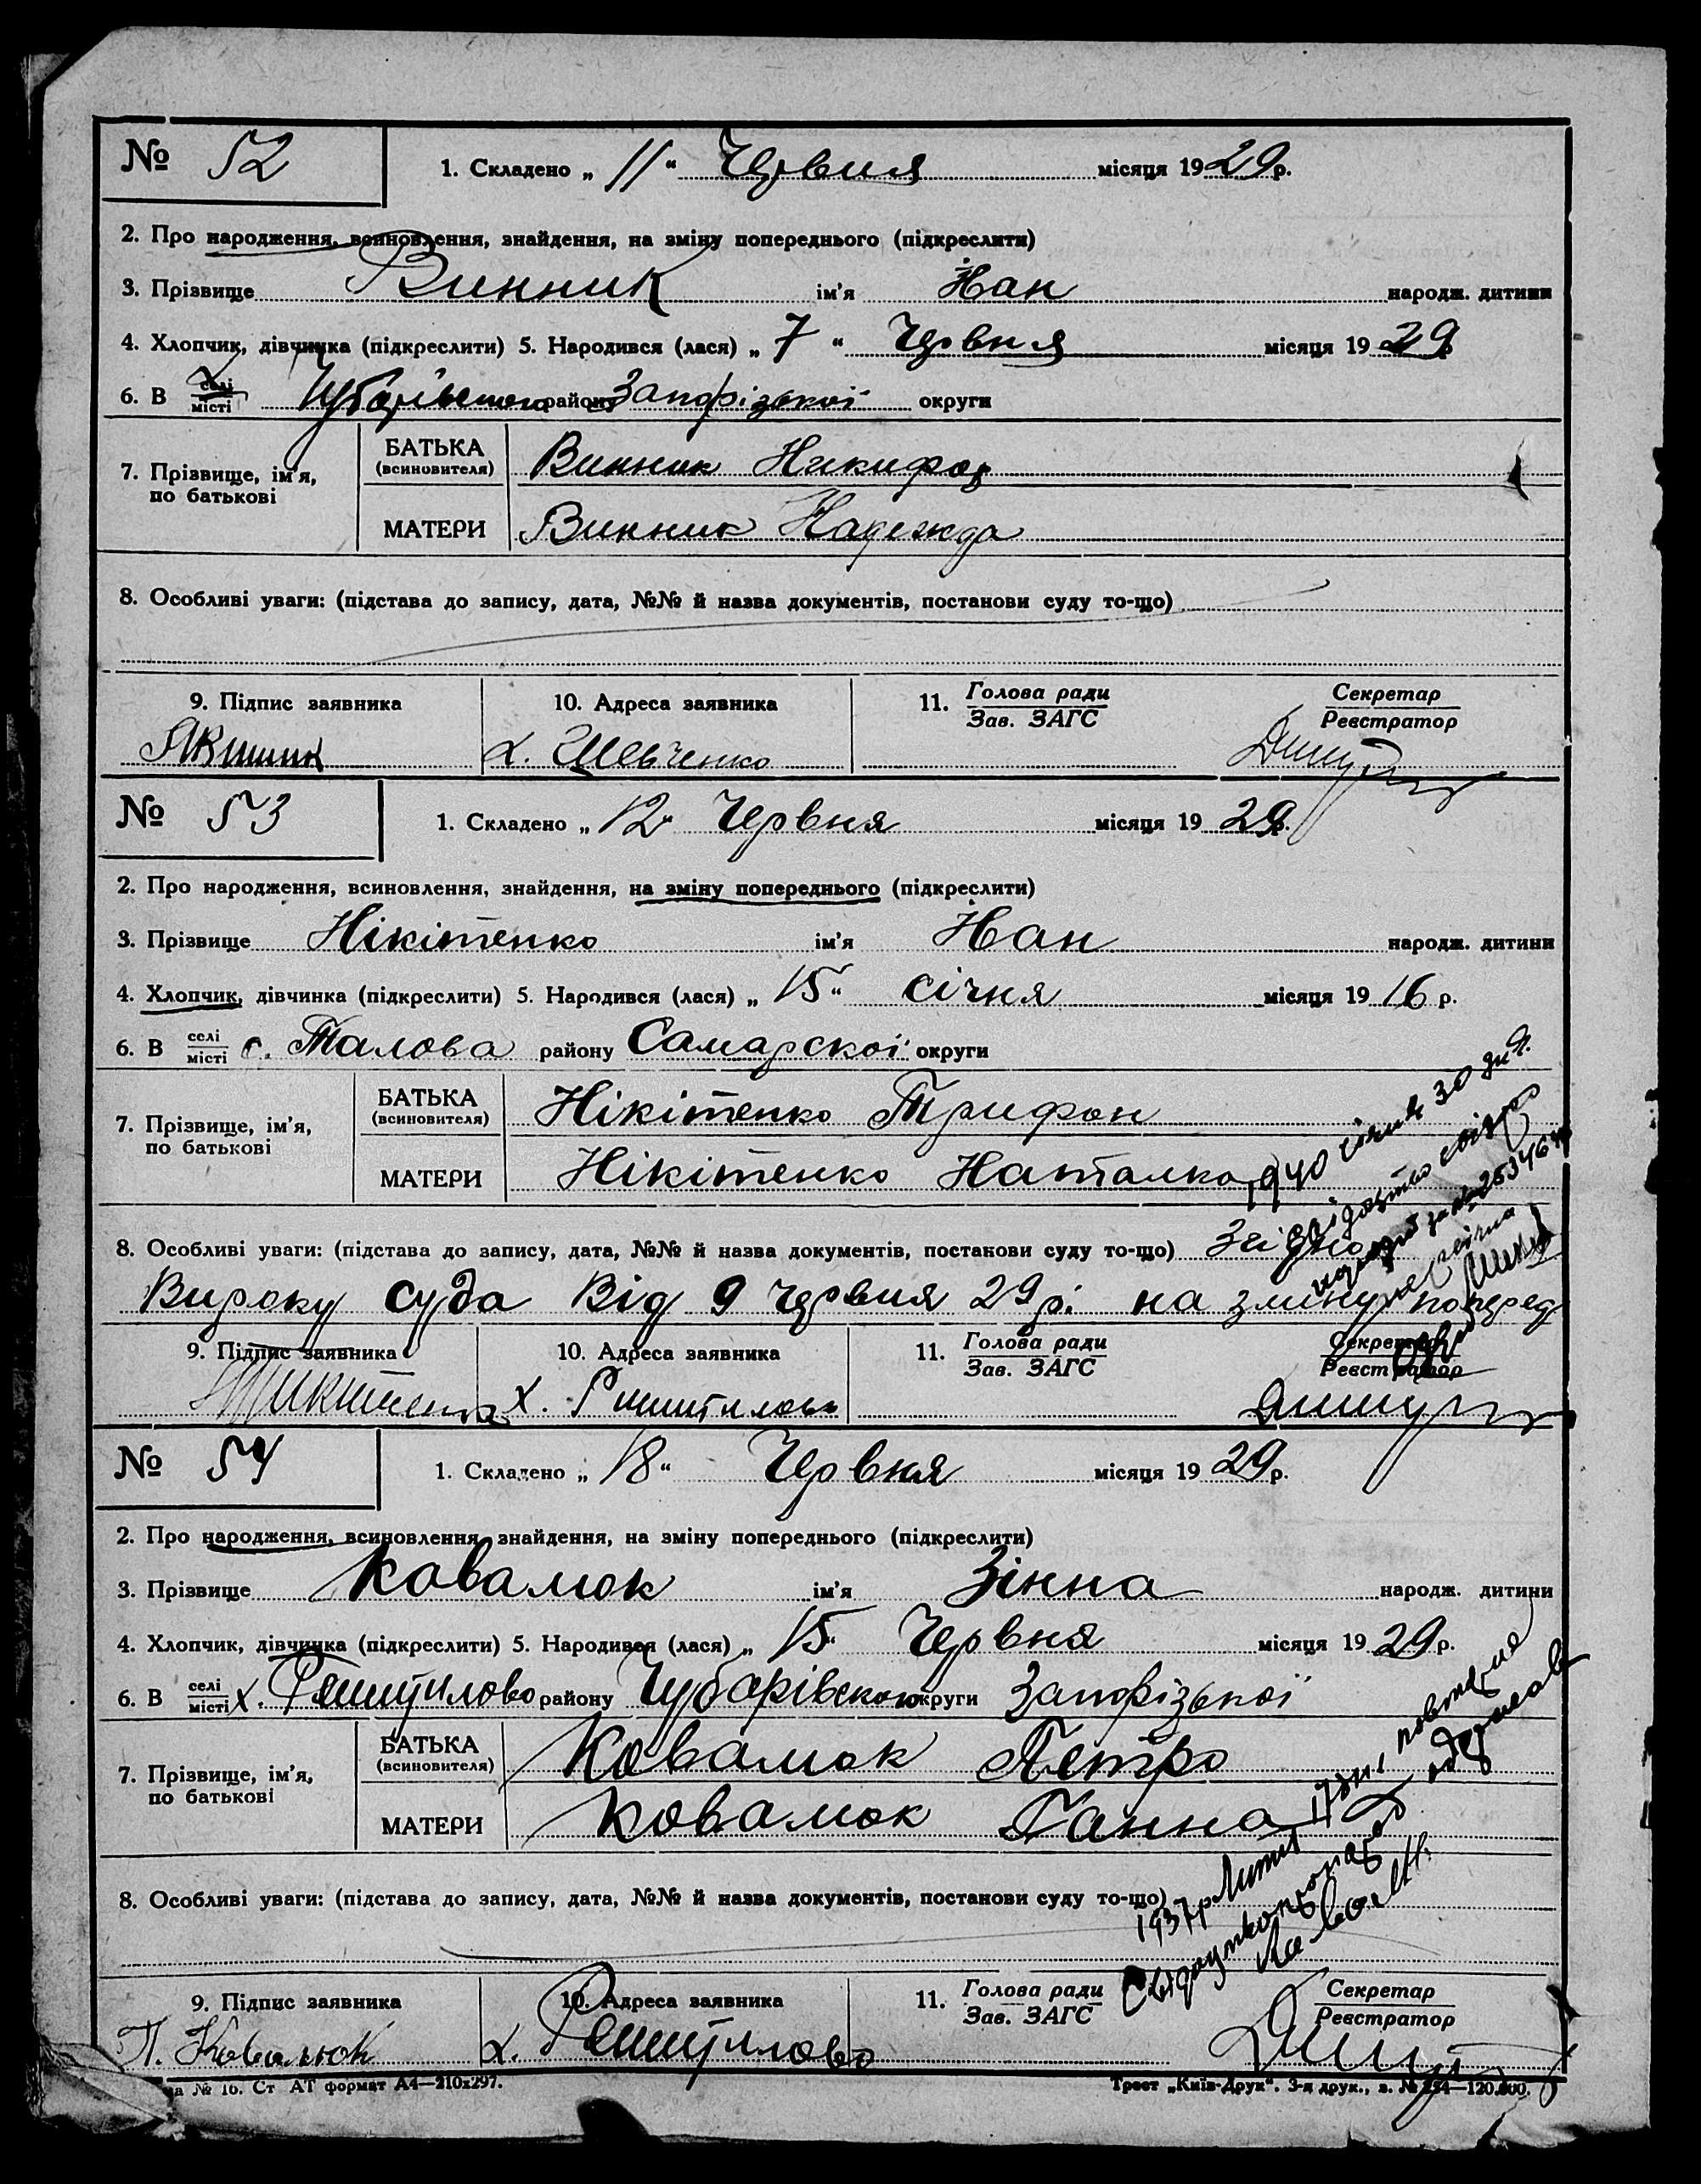 № 52 1. Складено „11“ Червня місяця 1929р.
2. Про народження, всиновлення, знайдення, на зміну попереднього (підкреслити)
3. Прізвище Винник ім'я Іван народж. дитини
4. Хлопчик, дівчинка (підкреслити) 5. Народився (лася) „7“ Червня місяця 1929
6. В селі місті району Запорізької округи
7. Прізвище, ім'я, по батькові
БАТЬКА (всиновителя) Винник Никифор
МАТЕРИ Винник Надежда
8. Особливі уваги: (підстава до запису, дата, №№ й назва документів, постанови суду то-що)
9. Підпис заявника 10. Адреса заявника 11. Голова ради Зав. ЗАГС Секретар Реєстратор
х. Шевченко
№ 53 1. Складено „12“ Червня місяця 1929р.
2. Про народження, всиновлення, знайдення, на зміну попереднього (підкреслити)
3. Прізвище Нікітенко ім'я Іван народж. дитини
4. Хлопчик, дівчинка (підкреслити) 5. Народився (лася) „15“ січня місяця 1916 р.
6. В селі місті с. Талова району Самарскої округи
7. Прізвище, ім'я, по батькові
БАТЬКА (всиновителя) Нікітенко Трифон
МАТЕРИ Нікітенко Наталка
1940 січня 30 дня
8. Особливі уваги: (підстава до запису, дата, №№ й назва документів, постанови суду то-що) Згідно
Вироку суда від 9 червня 29р. на зміну поперед
9. Підпис заявника 10. Адреса заявника 11. Голова ради Зав. ЗАГС Секретар Реєстратор
х. Решитилово
№ 54 1. Складено „18“ Червня місяця 1929р.
2. Про народження, всиновлення, знайдення, на зміну попереднього (підкреслити)
3. Прізвище Ковалюк ім'я Зінна народж. дитини
4. Хлопчик, дівчинка (підкреслити) 5. Народився (лася) „15“ Червня місяця 1929р.
6. В селі місті х. Решитилово району Чубарівского округи Запорізької
7. Прізвище, ім'я, по батькові
БАТЬКА (всиновителя) Ковалюк Петро
МАТЕРИ Ковалюк Ганна
1937р Лютня 17 дня повторне
8. Особливі уваги: (підстава до запису, дата, №№ й назва документів, постанови суду то-що)
9. Підпис заявника 10. Адреса заявника 11. Голова ради Зав. ЗАГС Секретар Реєстратор
П. Ковалюк х. Решитилово
№ 16. Ст АТ формат А4—210х297. Трест „Київ-Друк“. 3-я друк., з. № —120.000.